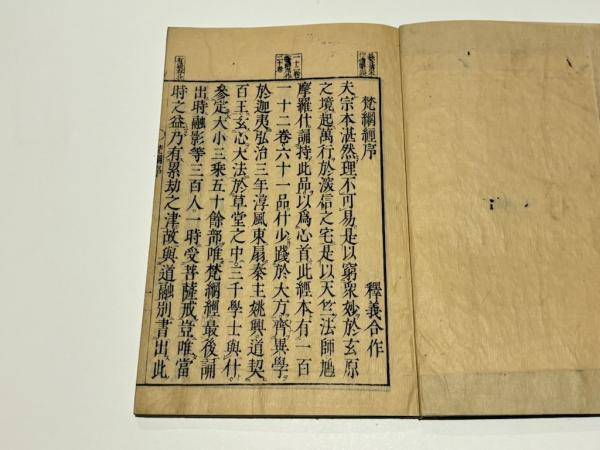 梵網經序
釋義合作
夫宗本湛然理不可易是以窮衆妙於玄原
之境起萬行於淡信之宅是以天竺法師鳩
摩羅什誦持此品以爲心首此經本有一百
一十二卷六十一品什少踐於大方齊異學
於迦夷弘治三年淳風東扇秦主姚興道契
百王玄心大法於草堂之中三千學士與什
參定大小三乘五十餘部唯梵網經最後誦
出時融影等三百人一時受菩薩戒豈唯當
時之益乃有累劫之津故與道融別書出此